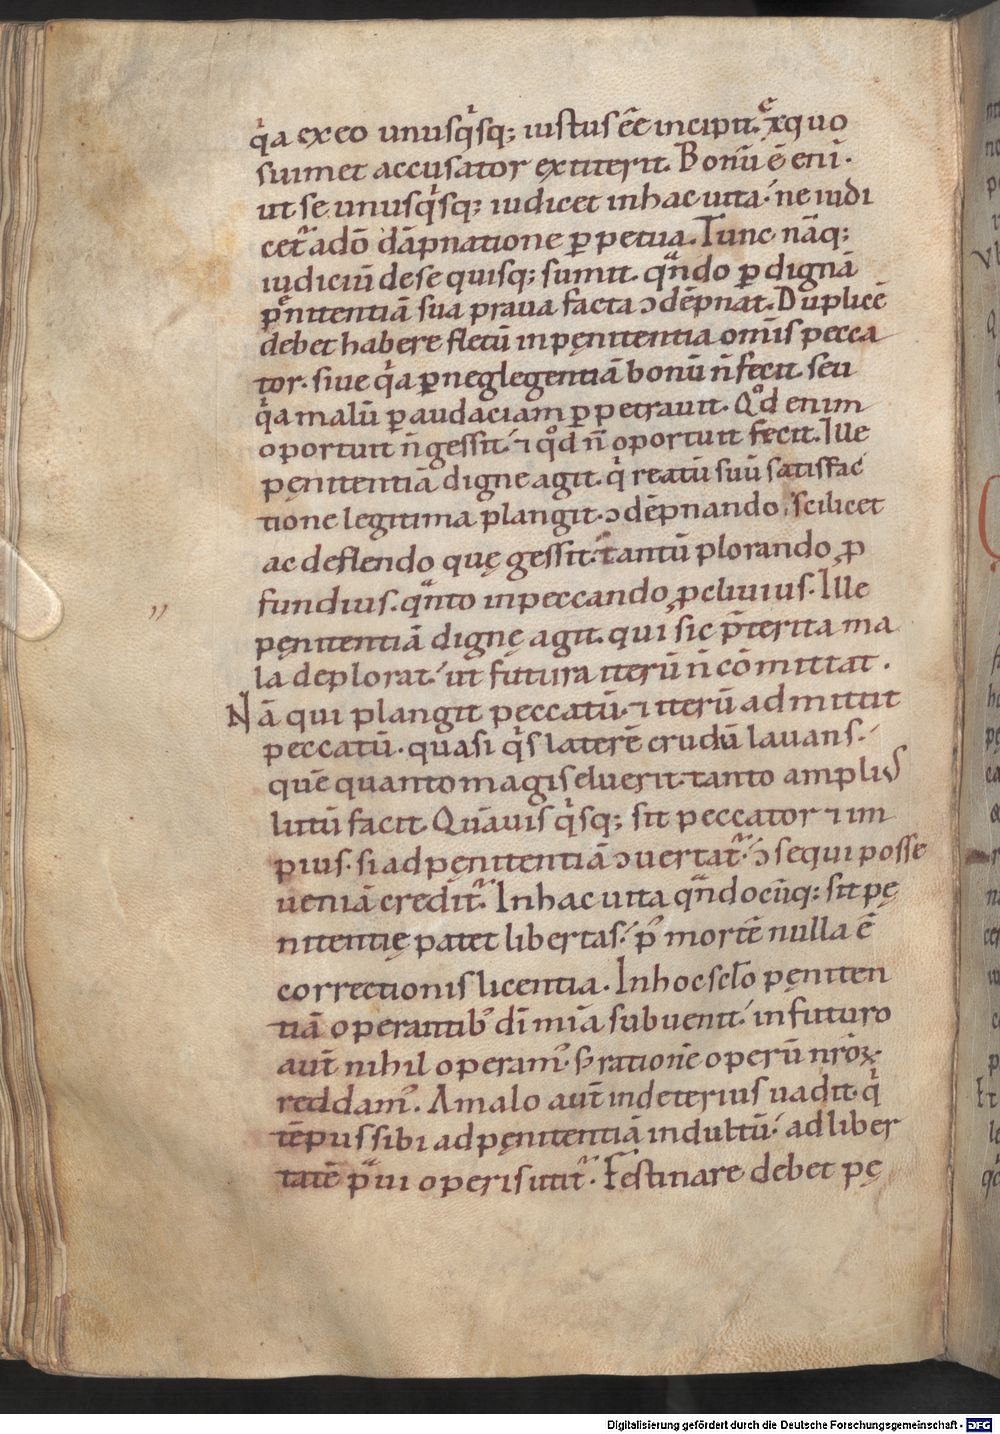 qͥa ex eo unusqͥsq; iustus eē incipit. exquo
suimet accusator extiterit. Bonū ē eni̅.
ut se unusqͥsq; iudicet inhac uita. ne iudi
cet᷑ adō dāpnatione ꝑpetua. Tunc nāq;
iudiciū dese quisq; sumit. qᷓndo ꝑ dignā
pᷓnitentiā sua praua facta ↄdēpnat. Duplicē
debet habere fletū inpęnitentia omi̅s pecca
tor. siue qͥa ꝑneglegentiā bonū n̄ fecit. seu
qͥa malū ꝑaudaciam ꝑpetrauit. Qͦd enim
oportuit n̄ gessit. ⁊ qͦd n̄ oportuit fecit. Ille
pęnitentiā digne agit. qͥ reatū suū satisfac
tione legitima plangit. ↄdēpnando scilicet
ac deflendo quę gessit. tantū plorando ꝓ
fundius. qᷓnto inpeccando ꝓcliuius. Ille
pęnitentiā dignę agit. qui sic p̄terita ma
la deplorat. ut futura iterū n̄ cōmittat.
Nā qui plangit peccatū. ⁊ iterū admittit
peccatū. quasi qͥs laterē crudū lauans.
quē quanto magis eluerit. tanto amplius
lutū facit. Quāuis qͥsq; sit peccator ⁊ im
pius. si ad pęnitentiā ↄuertat᷑. ↄsequi posse
ueniā credit᷑. Inhac uita qᷓndocūq; sit pę
nitentię patet libertas. pꝰ mortē nulla ē
correctionis licentia. Inhoc scl̄o pęniten
tiā operantibꝰ di̅ mi̅a subuenit. infuturo
aut̄ nihil operamꝰ. s; rationē operū nr̄oꝝ
reddamꝰ. Amalo aut̄ indeterius uadit. qͥ
tēpus sibi adpęnitentiā indultū. adliber
tatē pᷓui operis utit᷑. Festinare debet pę